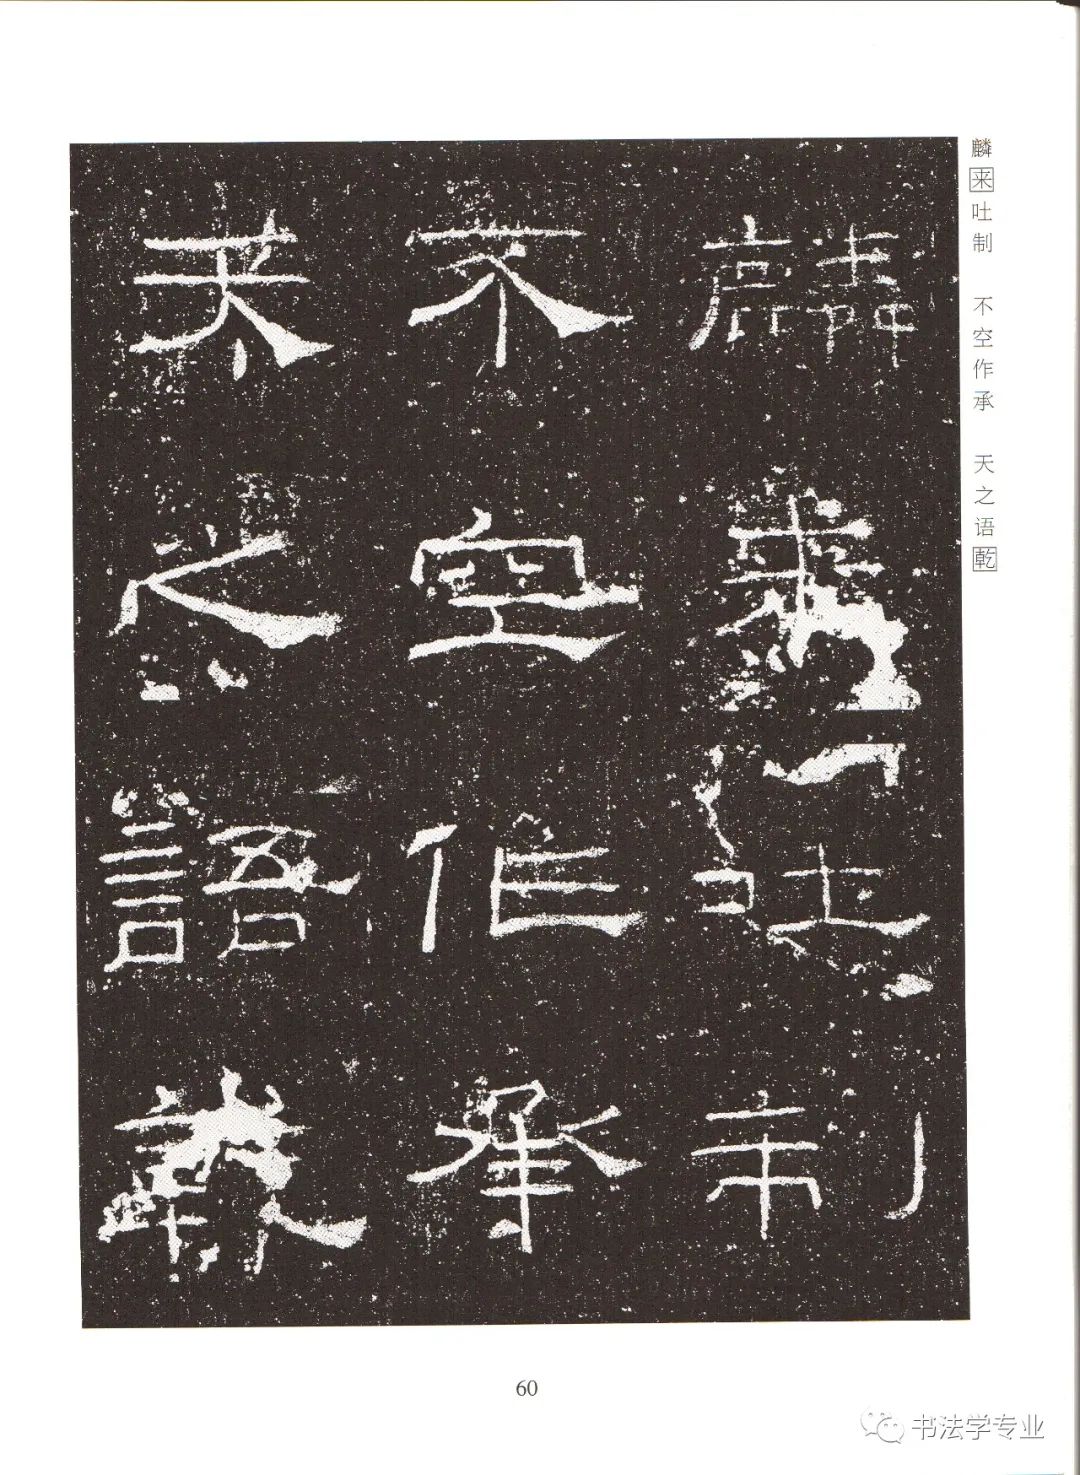 麟來吐制
不空作承
天之語乾
麟来吐制 不空作承 天之语乾
60
书法学专业